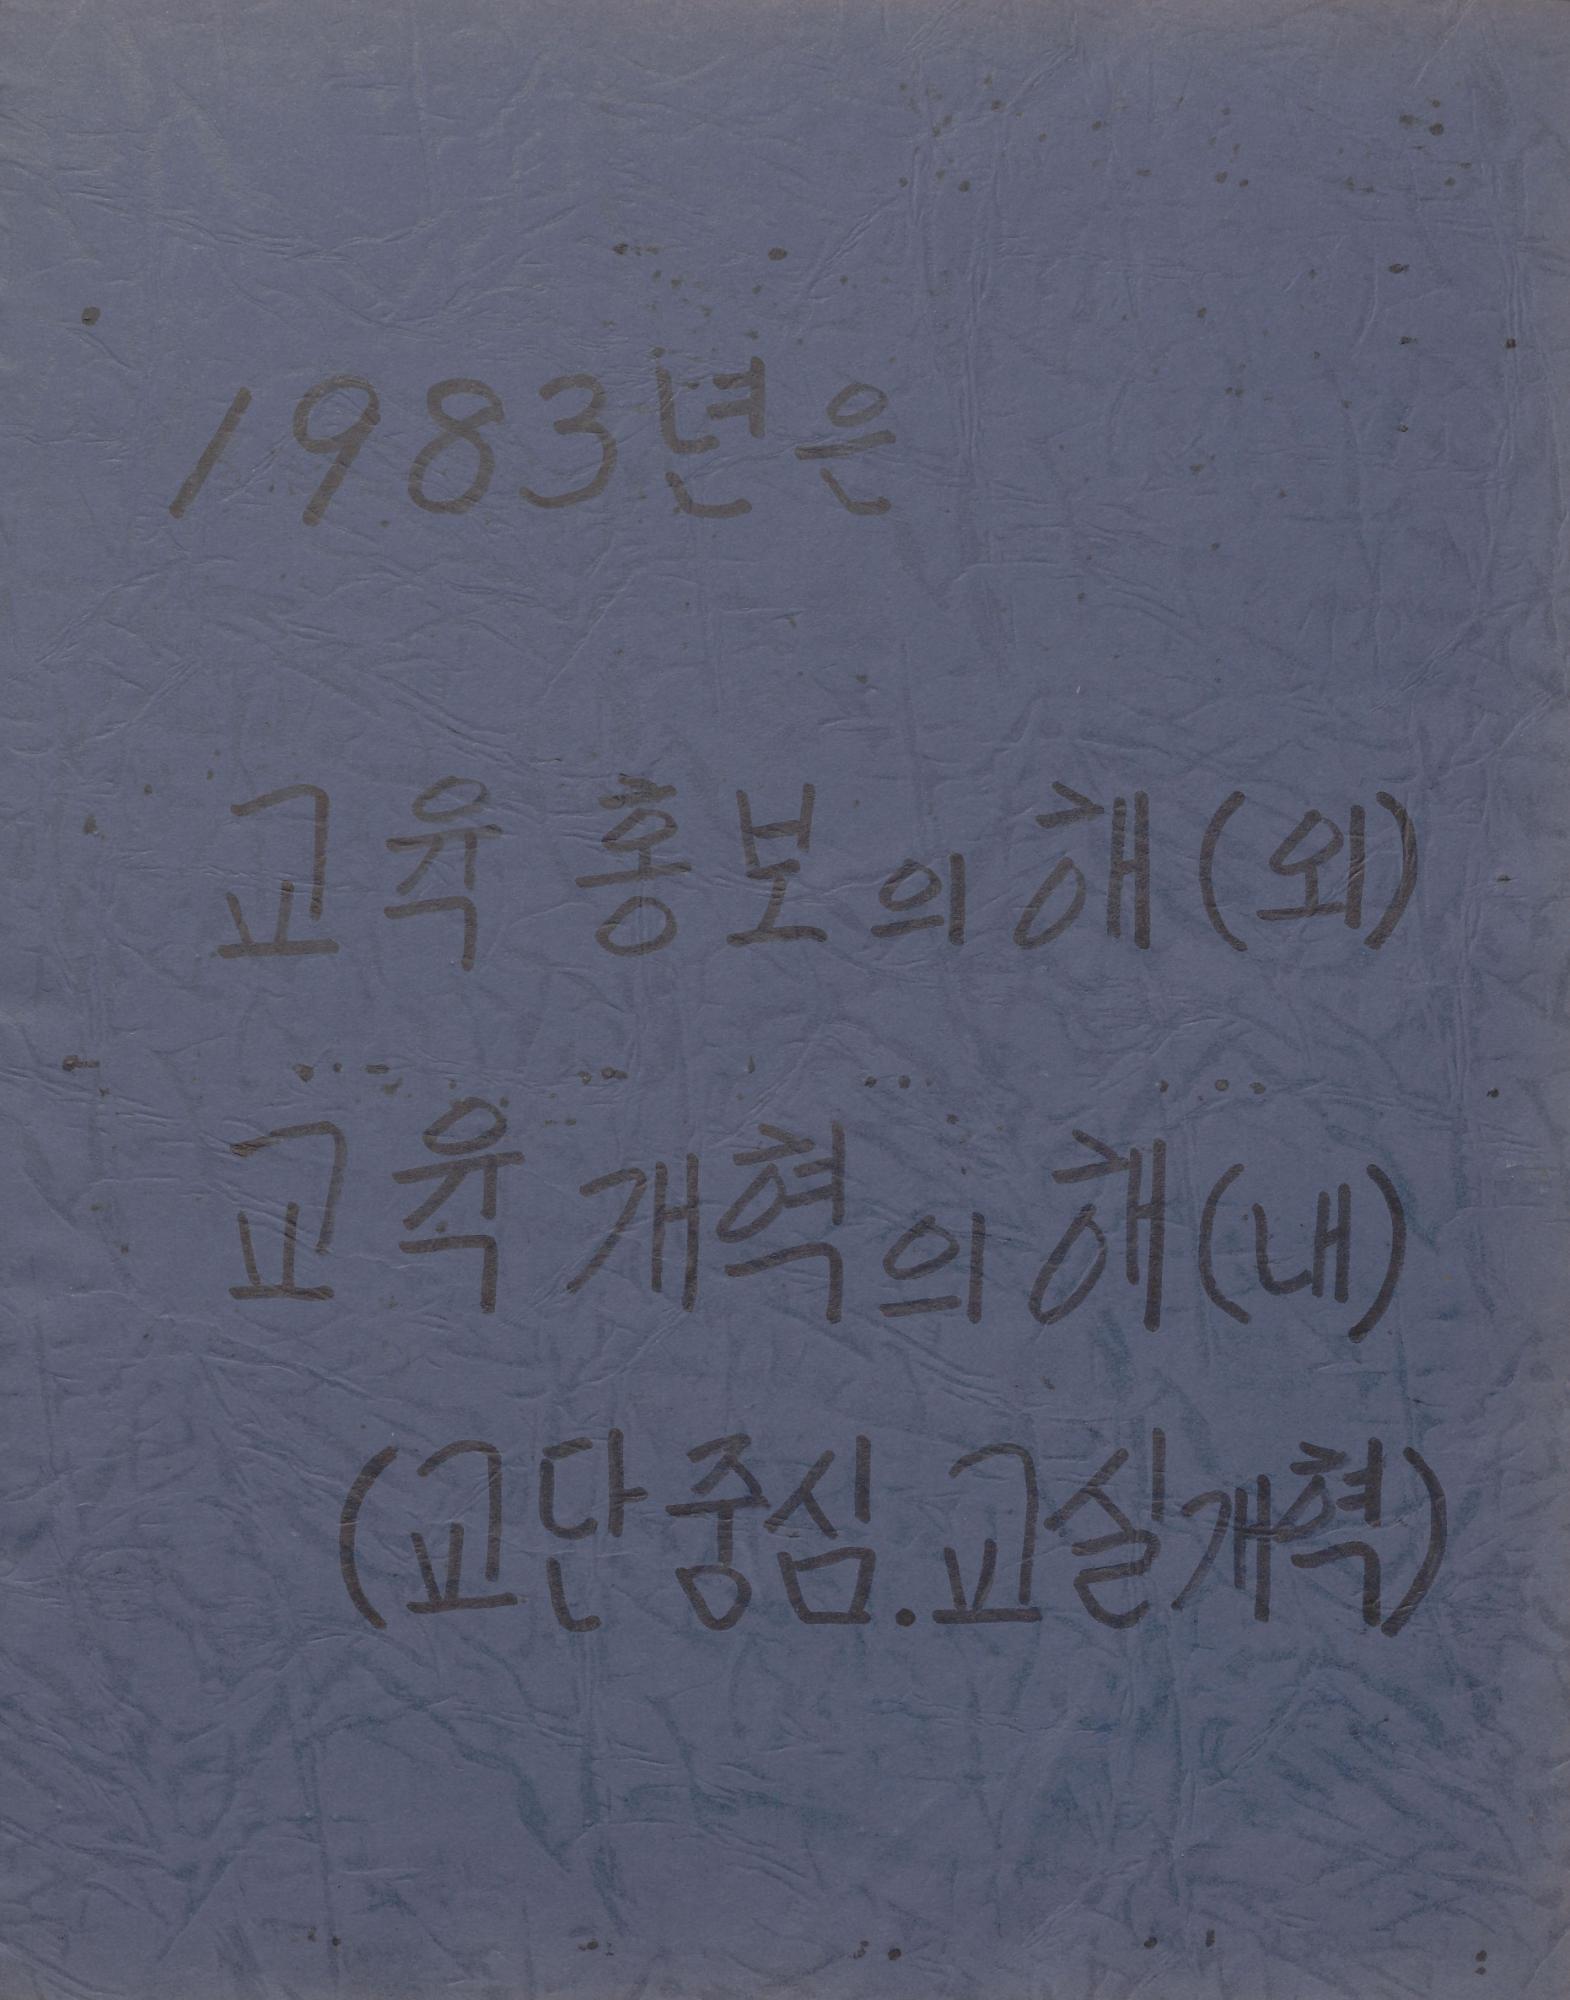 1983년은
교육 홍보의 해 (외)
교육 개혁의 해 (내)
(교단중심.교실개혁)